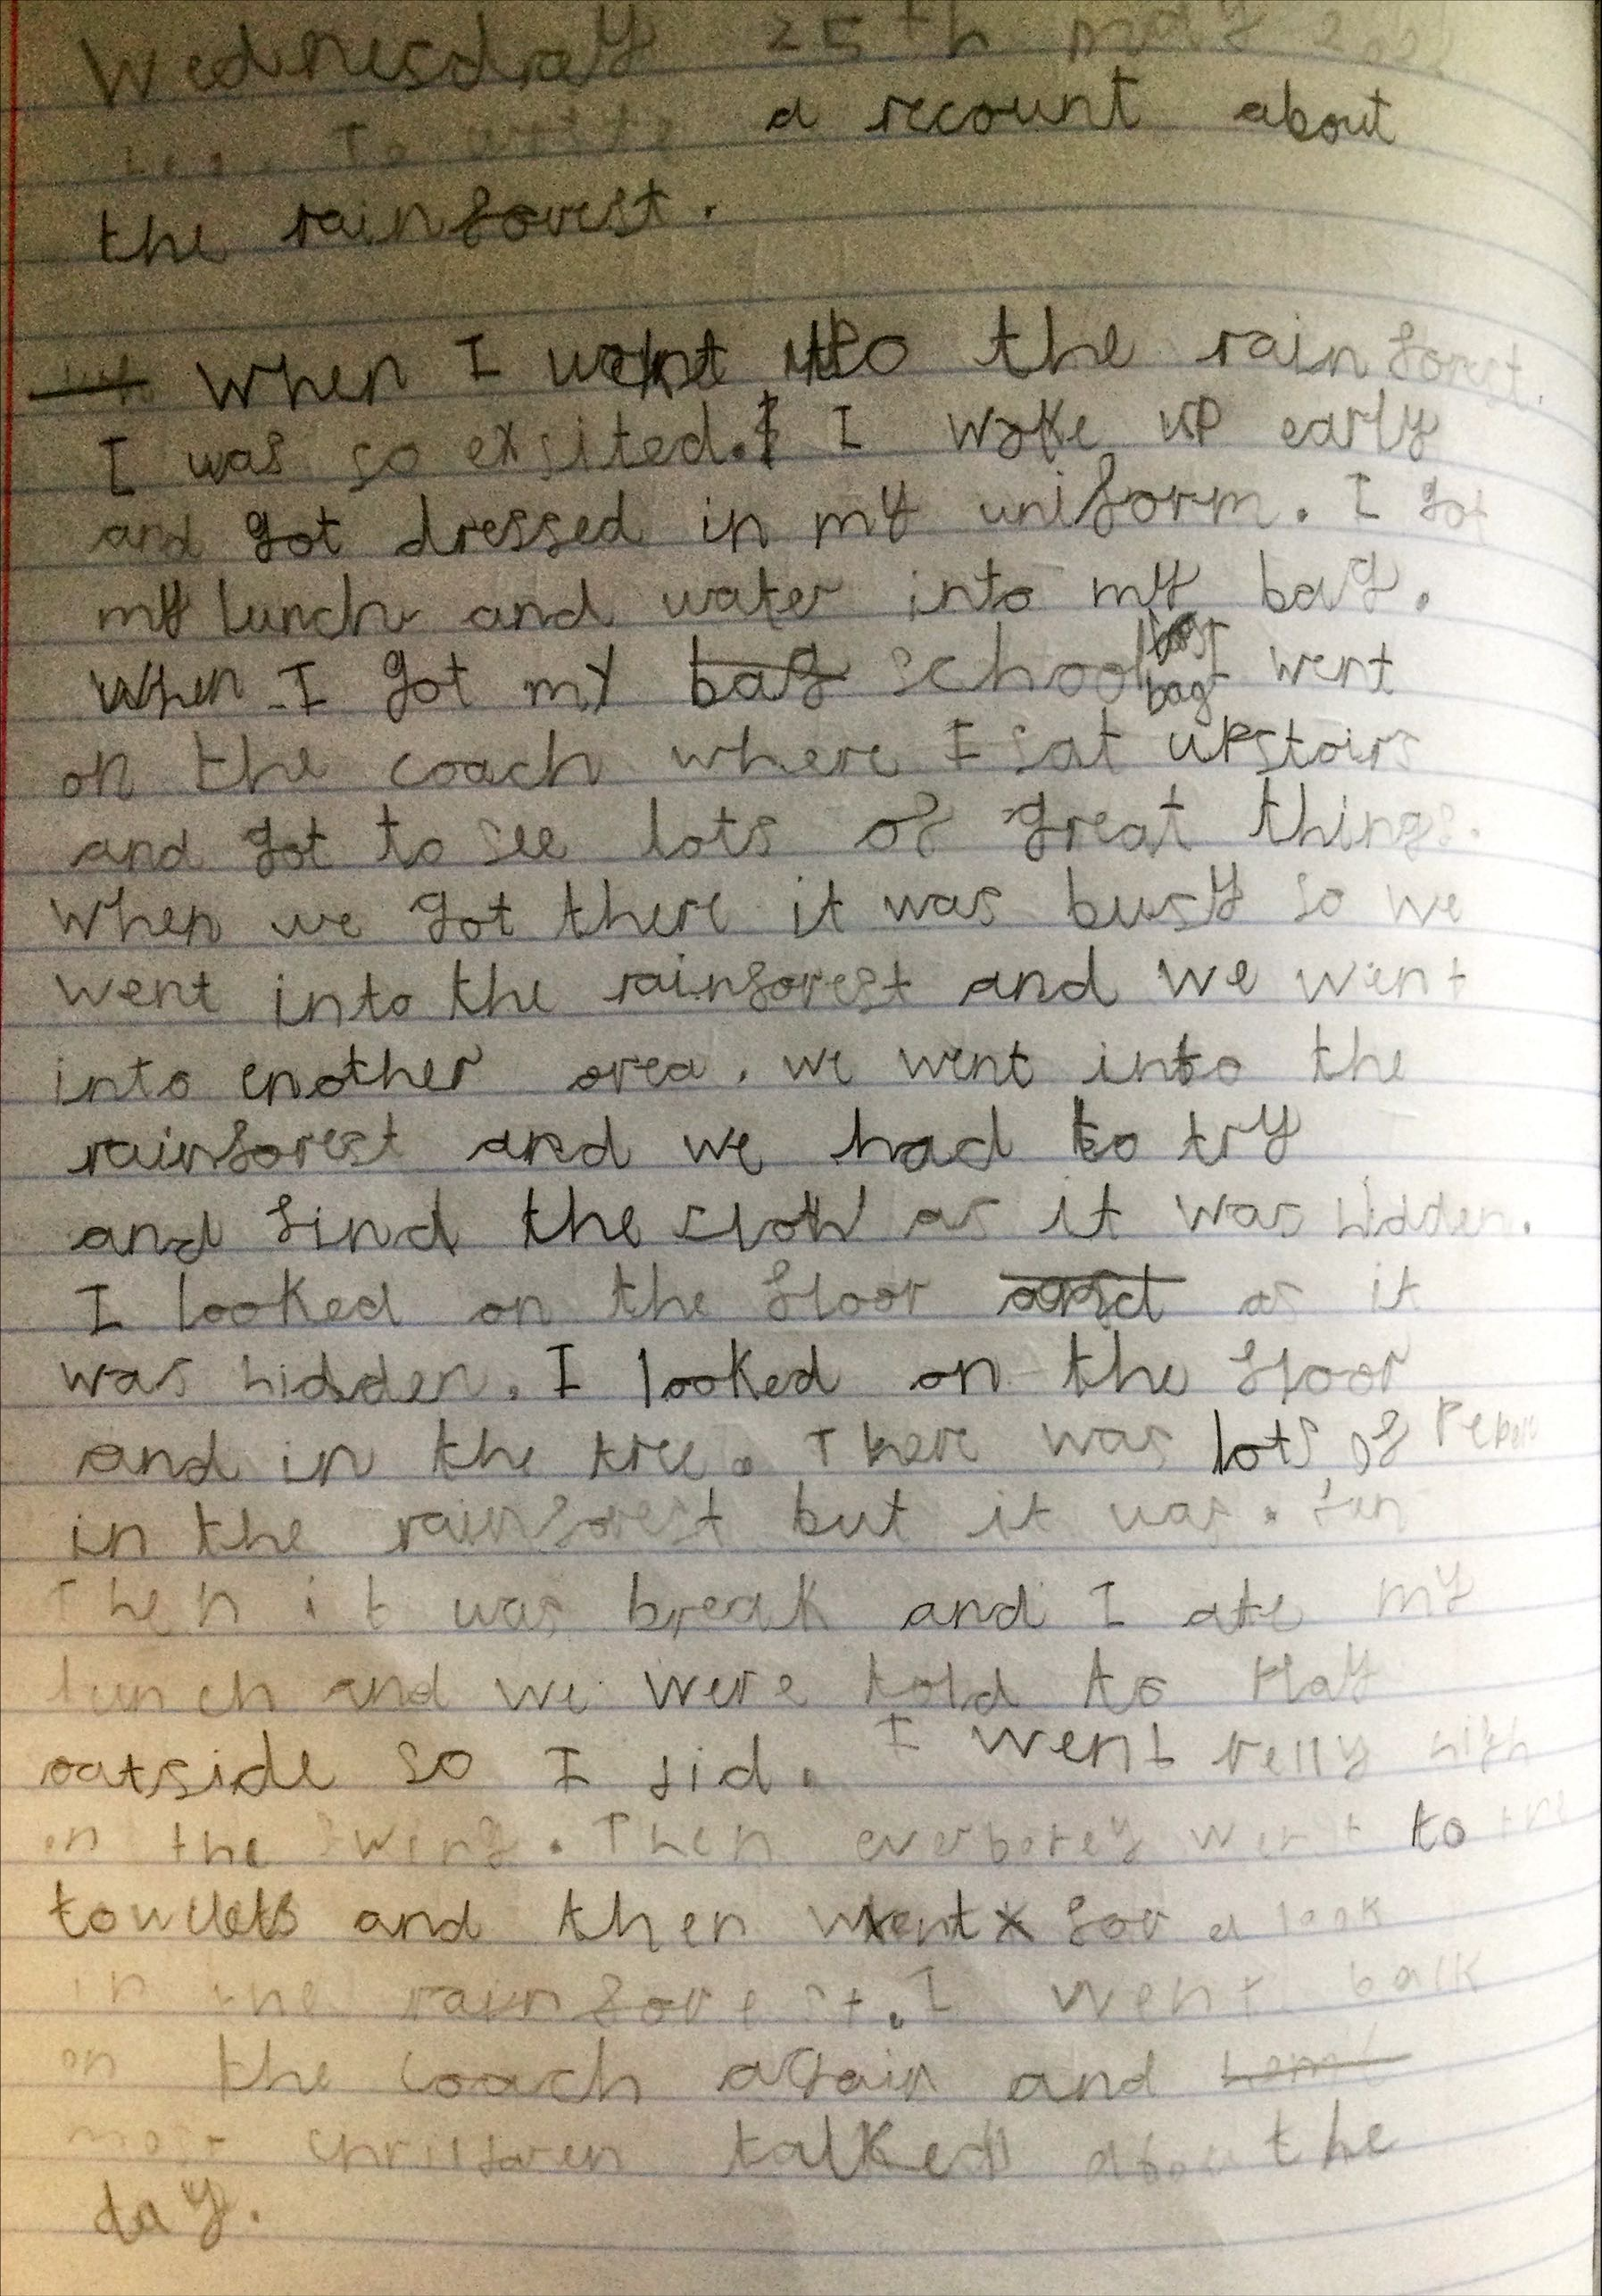 Wednesday 25th may
To write a recount about
the rainforest.
When I went to the rainforest.
I was so exsited. I woke up early
and got dressed in my uniform. I got
my lunch and water into my bag.
When I got my bag school bag I went
on the coach where I sat upstairs
and got to see lots of great things.
When we got there it was busy so we
went into the rainforest and we went
into enother area. we went into the
rainforest and we had to try
and find the sloth as it was hidden.
I looked on the floor as it
was hidden. I looked on the floor
and in the tree. There was lots of
in the rainforest but it was. fun
Then it was break and I ate my
lunch and we were told to play
outside so I did. I went relly high
on the swing. Then everborey went to the
and then went for a look
in the rainforest. I went back
on the coach again and
most talked about the
day.